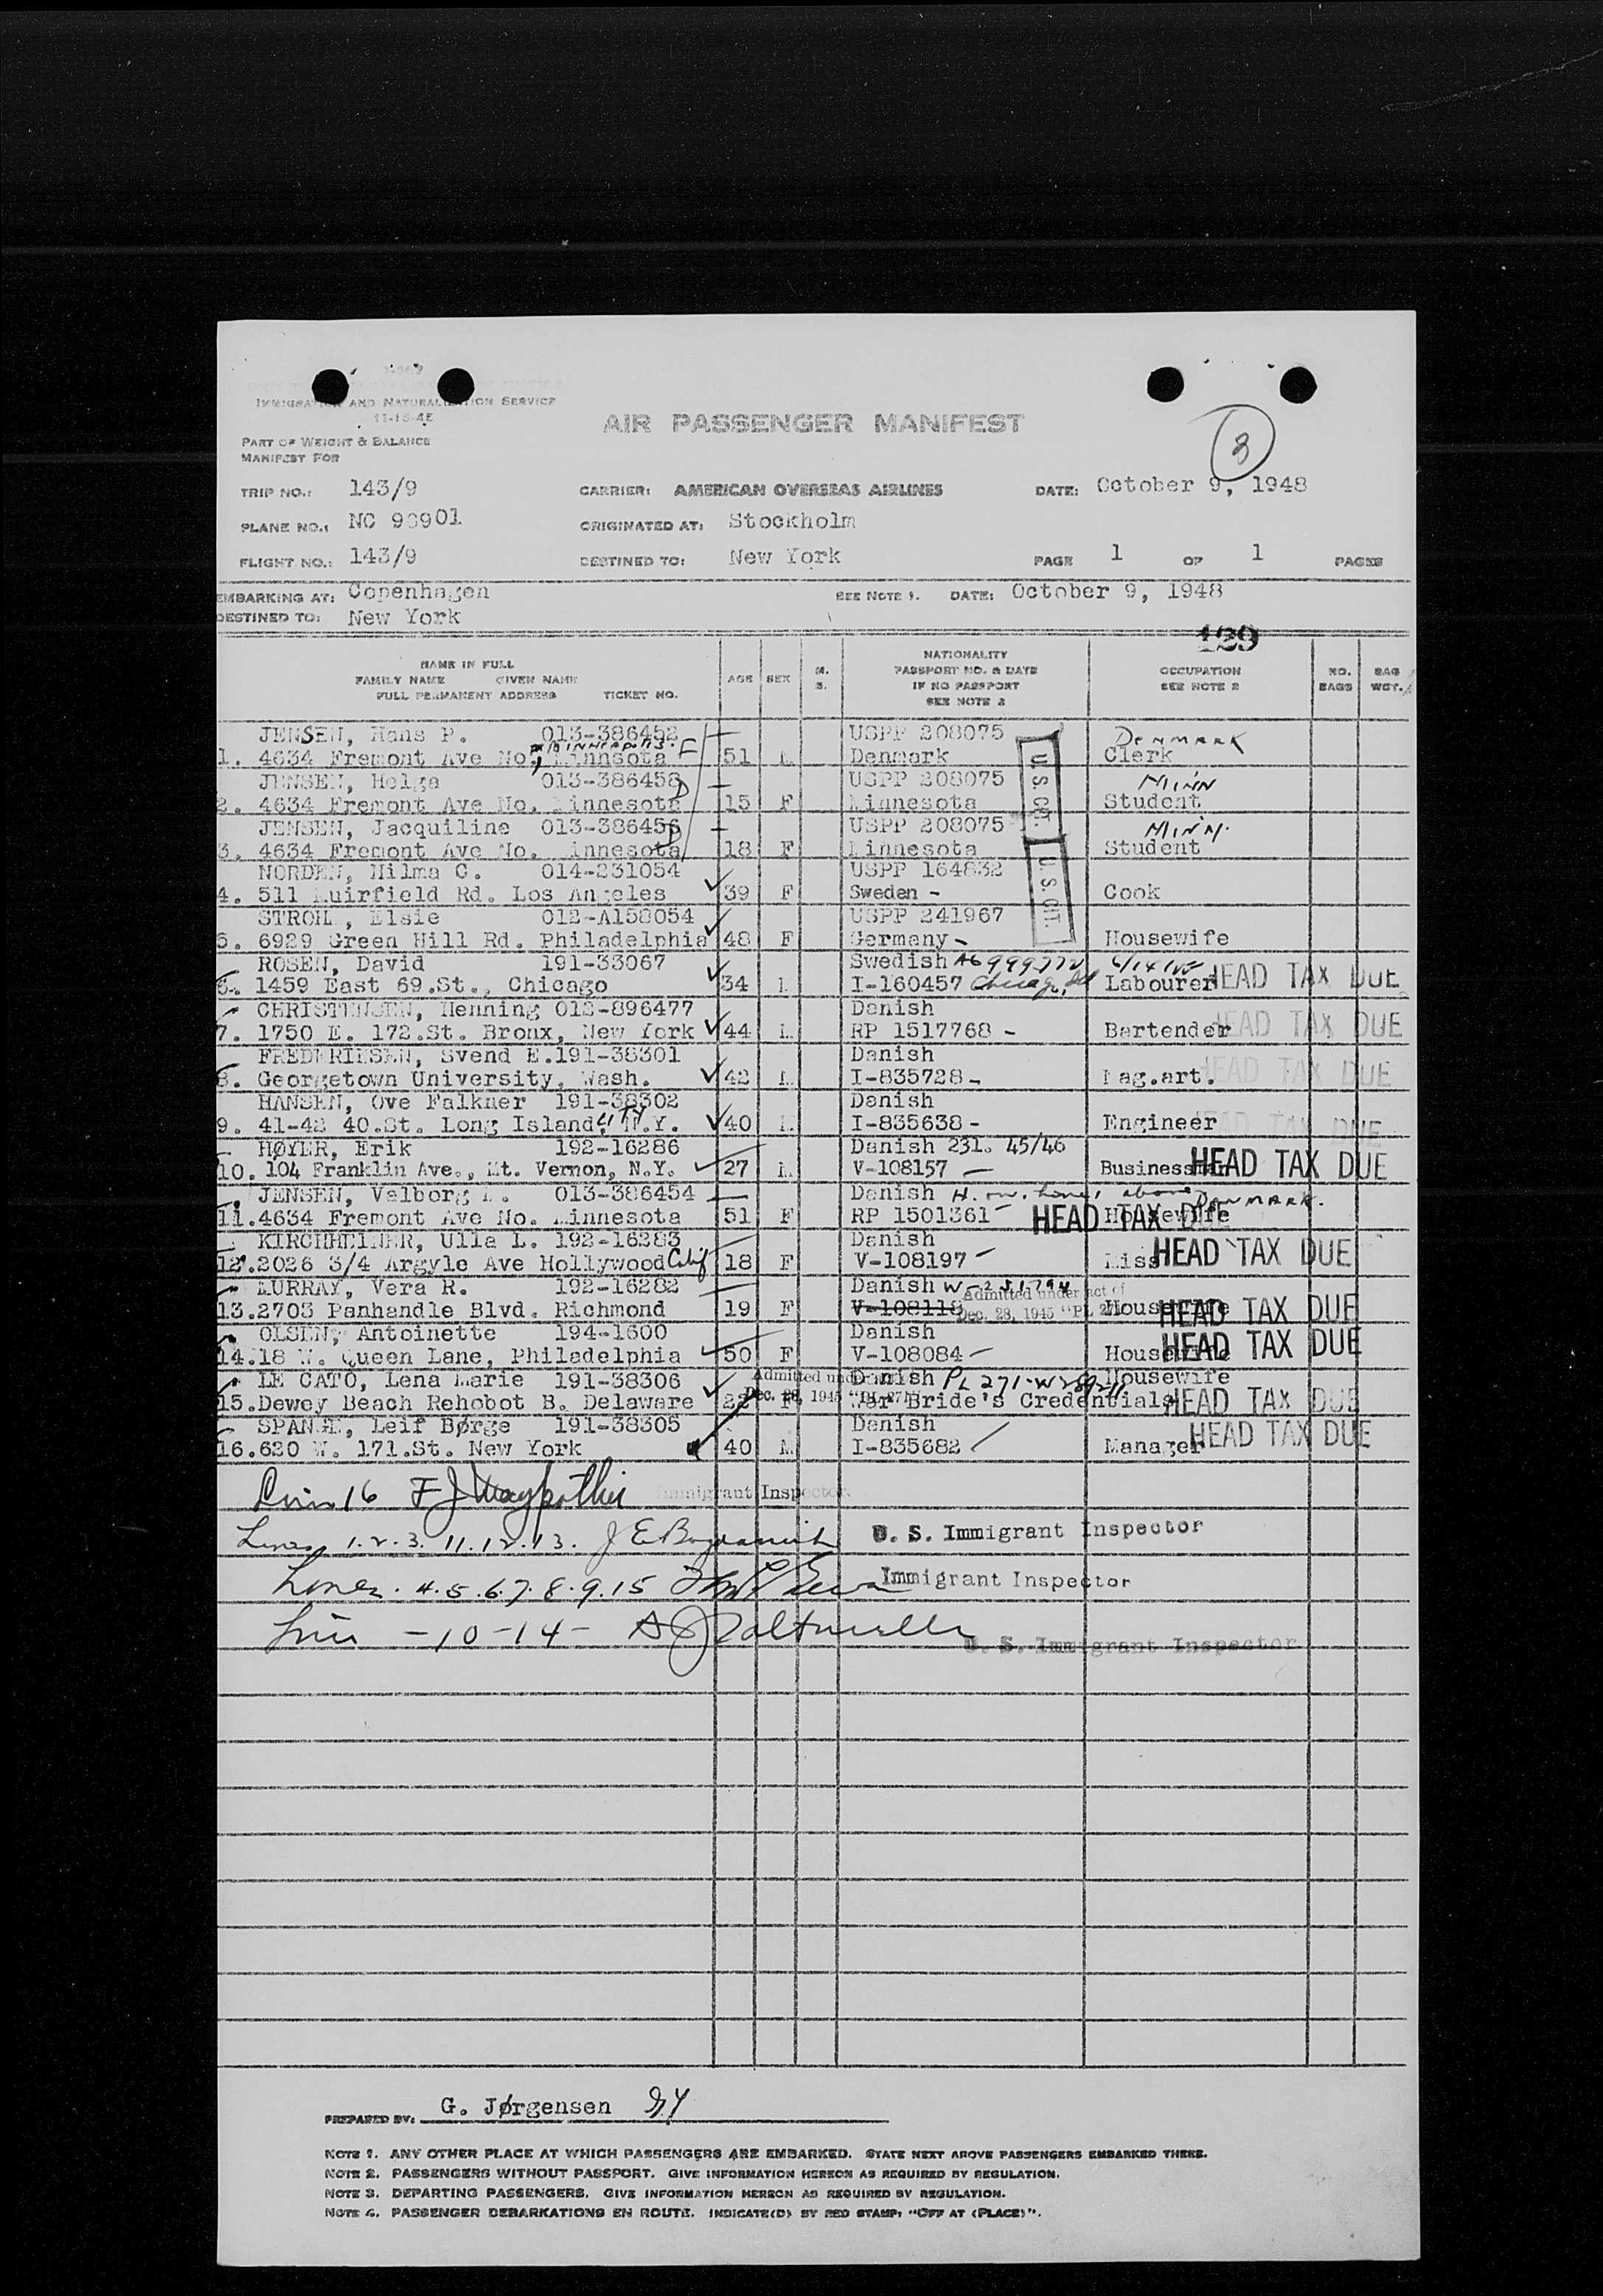 I-567
IMMIGRATION AND NATURALIZATION SERVICE
11-15-45
PART OF WEIGHT & BALANCE
MANIFEST FOR
AIR PASSENGER MANIFEST
TRIP NO.: 143/9 CARRIER: AMERICAN OVERSEAS AIRLINES DATE: October 9, 1948
PLANE NO.: NC 90901 ORIGINATED AT: Stockholm
FLIGHT NO.: 143/9 DESTINED TO: New York PAGE 1 OF 1 PAGES
EMBARKING AT: Copenhagen SEE NOTE 1. DATE: October 9, 1948
DESTINED TO: New York
129
NAME IN FULL
FAMILY NAME GIVEN NAME
FULL PERMANENT ADDRESS TICKET NO.
AGE SEX M. S.
NATIONALITY
PASSPORT NO. & DATE
IF NO PASSPORT
SEE NOTE 2
OCCUPATION
SEE NOTE 2
NO. BAGS
BAG WGT.
JENSEN, Hans P. 013-386452 USPP 208075 DENMARK
MINNEAPOLIS.
1. 4634 Fremont Ave No, Minnsota F 51 M Denmark Clerk
JENSEN, Helga 013-386458 USPP 208075 MINN
2. 4634 Fremont Ave No. Minnesota D 15 F Minnesota Student
JENSEN, Jacquiline 013-386456 USPP 208075 MINN.
3. 4634 Fremont Ave No. Minnesota D 18 F Minnesota Student
U.S. CIT.
NORDEN, Hilma C. 014-231054 USPP 164832
4. 511 Muirfield Rd. Los Angeles 39 F Sweden - Cook
U.S. CIT.
STROHM, Elsie 012-A158054 USPP 241967
5. 6929 Green Hill Rd. Philadelphia 48 F Germany - Housewife
ROSEN, David 191-33067 Swedish
6. 1459 East 69.St., Chicago 34 M I-160457 Chicago, Ill Labourer HEAD TAX DUE
CHRISTENSEN, Henning 012-896477 Danish
7. 1750 E. 172.St. Bronx, New York 44 M RP 1517768 - Bartender HEAD TAX DUE
FREDERIKSEN, Svend E. 191-38301 Danish
8. Georgetown University, Wash. 42 M I-835728 - Mag.art. HEAD TAX DUE
HANSEN, Ove Falkner 191-38302 Danish
9. 41-42 40.St. Long Island CITY, N.Y. 40 M I-835638 - Engineer HEAD TAX DUE
HØYER, Erik 192-16286 Danish 231. 45/46
10. 104 Franklin Ave., Mt. Vernon, N.Y. 27 M V-108157 - Businessman HEAD TAX DUE
JENSEN, Valborg M. 013-386454 Danish above DENMARK.
11. 4634 Fremont Ave No. Minnesota 51 F RP 1501361 - Housewife HEAD TAX DUE
KIRCHHEINER, Ulla L. 192-16283 Danish
12. 2026 3/4 Argyle Ave Hollywood Calif 18 F V-108197 - Miss HEAD TAX DUE
MURRAY, Vera R. 192-16282 Danish Admitted under act of
13. 2703 Panhandle Blvd. Richmond 19 F V-108118 Dec. 28, 1945 "PL 271" Housewife HEAD TAX DUE
OLSEN, Antoinette 194-1600 Danish
14. 18 W. Queen Lane, Philadelphia 50 F V-108084 - Housewife HEAD TAX DUE
LE CATO, Lena Marie 191-38306 Admitted under act of Danish PL 271 Housewife
15. Dewey Beach Rehobot B. Delaware 22 F Dec. 28, 1945 "PL 271" War Bride's Credentials HEAD TAX DUE
SPANGE, Leif Børge 191-38305 Danish
16. 620 W. 171.St. New York 40 M I-835682 Manager HEAD TAX DUE
Line 16 Immigrant Inspector
Lines 1.2.3. 11.12.13. U. S. Immigrant Inspector
Lines. 4.5.6.7.8.9.15 Immigrant Inspector
Line -10-14- U. S. Immigrant Inspector
PREPARED BY: G. Jørgensen
NOTE 1. ANY OTHER PLACE AT WHICH PASSENGERS ARE EMBARKED. STATE NEXT ABOVE PASSENGERS EMBARKED THERE.
NOTE 2. PASSENGERS WITHOUT PASSPORT. GIVE INFORMATION HEREON AS REQUIRED BY REGULATION.
NOTE 3. DEPARTING PASSENGERS. GIVE INFORMATION HEREON AS REQUIRED BY REGULATION.
NOTE 4. PASSENGER DEBARKATIONS EN ROUTE. INDICATE(D) BY RED STAMP: "OFF AT (PLACE)".